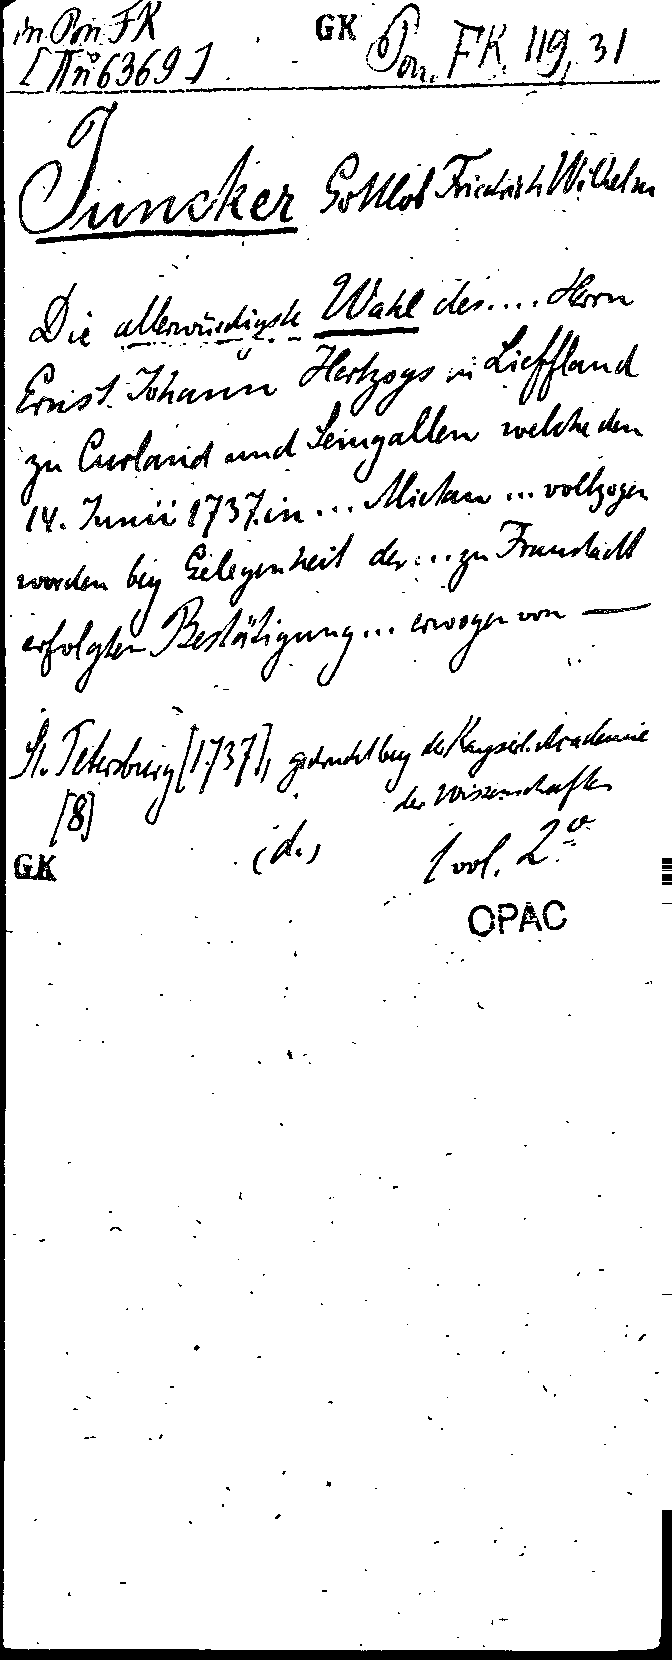 in Pon FK GK Pon. FK. 119, 31
[Πn° 6369]
Juncker Gottlob Friedrich Wilhelm
Die allerwürdigste Wahl des.... Herrn
Ernst Johann Hertzogs in Lieffland
zu Curland und Semgallen welche den
14. Junii 1737. in ... Mietau ... vollzogen
worden bey Gelegenheit der ... zu Fraustadt
erfolgten Bestätigung... erwogen von —
St. Petersburg [1737], gedruckt bey der Kayserl. Academie
der Wissenschafften
[8]
GK (d.) 1 vol. 2°
OPAC